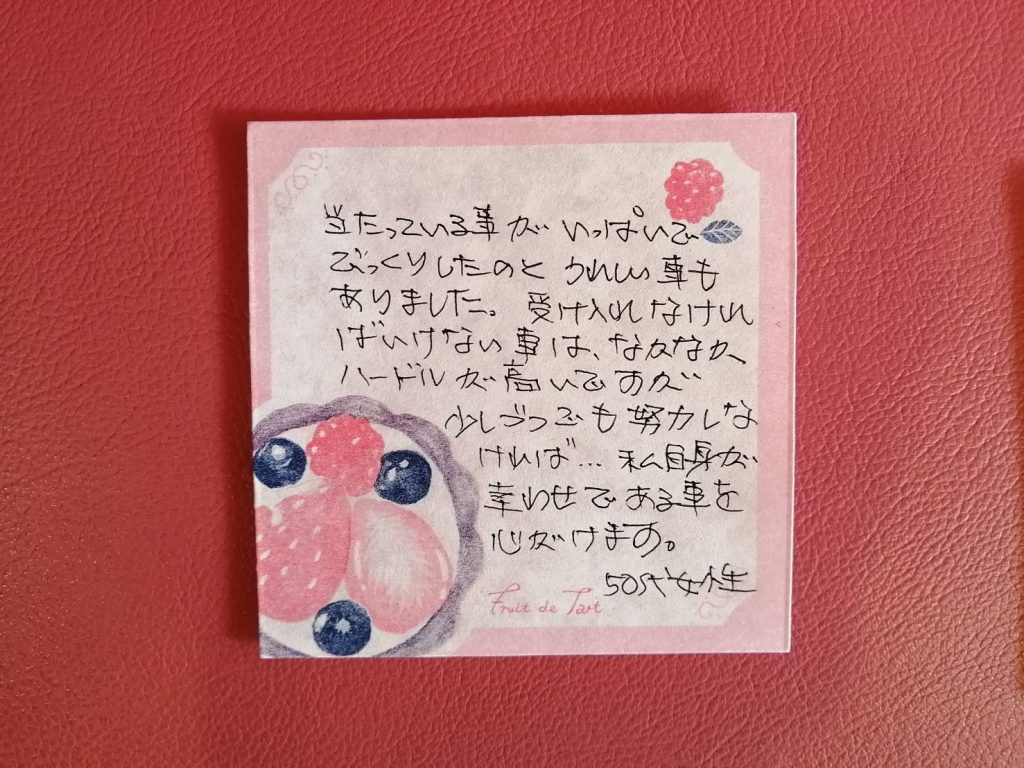 当たっている事が いっぱいで
びっくりしたのと うれしい事も
ありました。 受け入れなけれ
ばいけない事は、なかなか、
ハードルが高いですが
少しづつでも努力しな
ければ… 私自身が
幸わせである事を
心がけます。
50代女性
Fruit de Tart